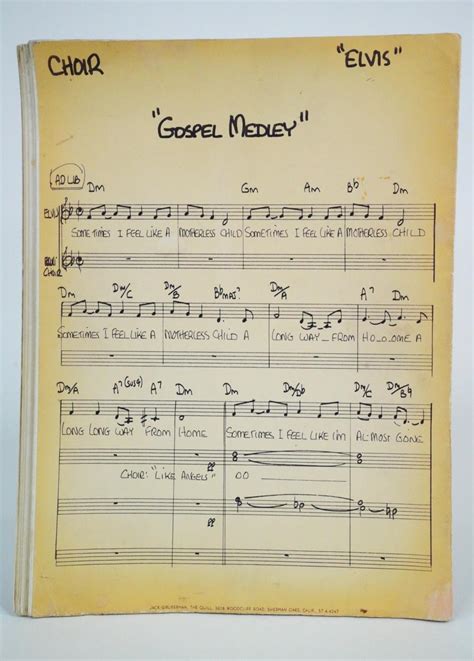 CHOIR
"ELVIS"
"GOSPEL MEDLEY"
AD LIB
Dm Gm Am Bb Dm
ELVIS
SOMETIMES I FEEL LIKE A MOTHERLESS CHILD SOMETIMES I FEEL LIKE A MOTHERLESS CHILD
CHOIR
Dm Dm/C Dm/B Bbmaj7 Dm/A A7 Dm
SOMETIMES I FEEL LIKE A MOTHERLESS CHILD A LONG WAY_FROM HO_O_OME A
Dm/A A7(sus4) A7 Dm Dm/Db Dm/C
LONG LONG WAY FROM HOME SOMETIMES I FEEL LIKE I'M AL-MOST GONE
pp
CHOIR: "LIKE ANGELS" OO
pp
JACK GRUBERMAN, THE QUILL, WOODCLIFF ROAD, SHERMAN OAKS, CALIF.